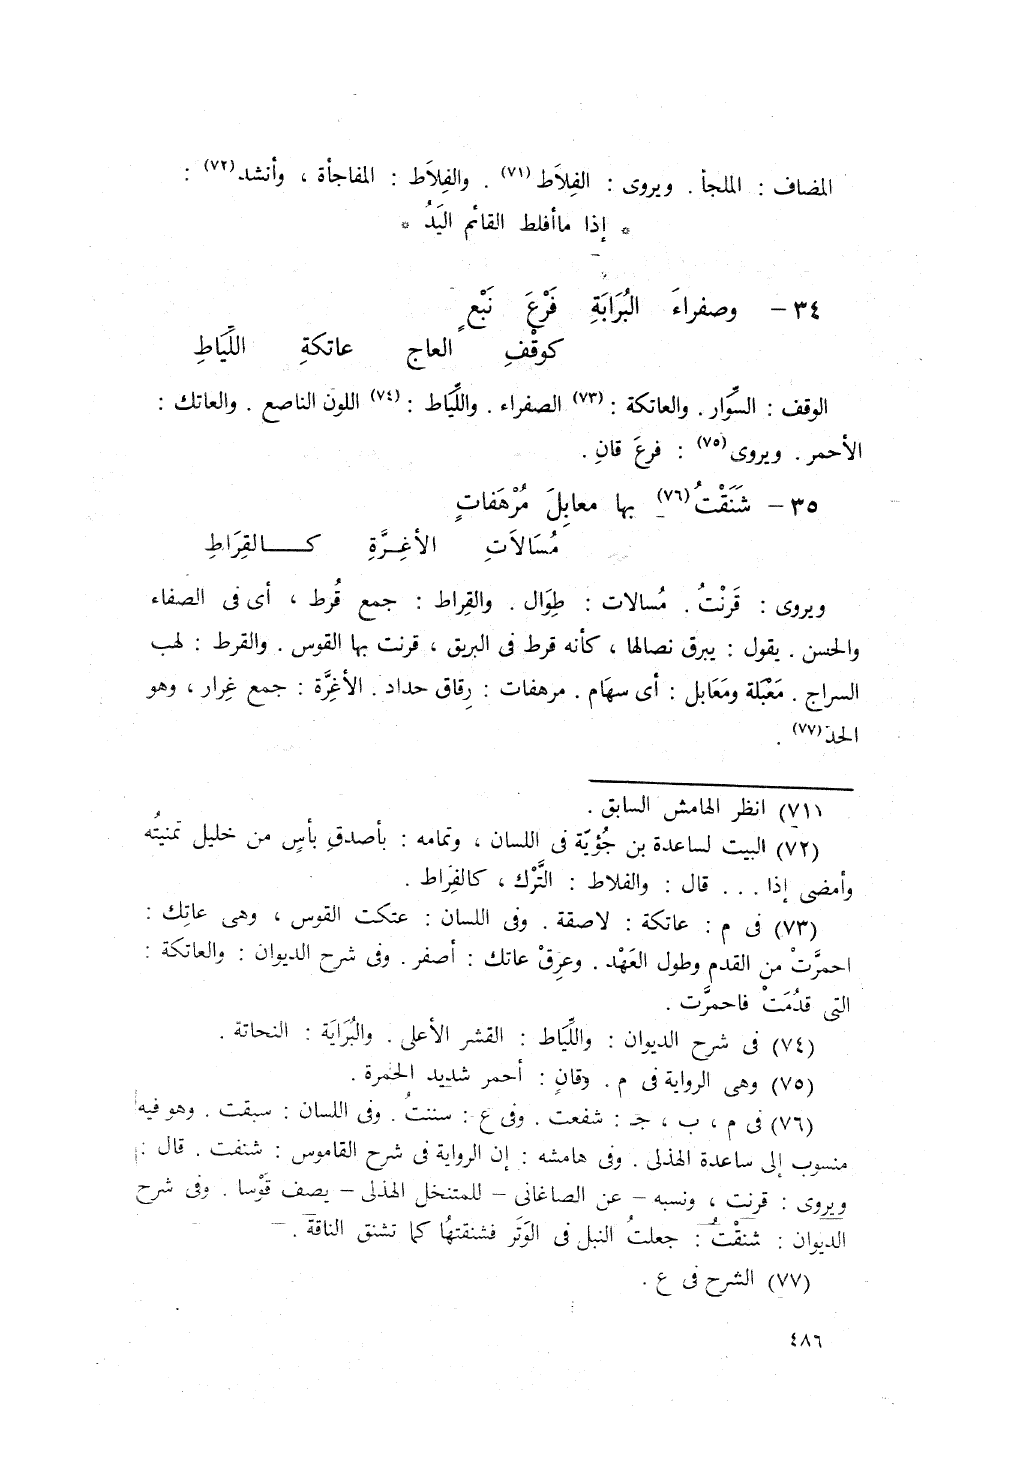 المضاف : الملجأ . ويروى : الفِلاَط (٧١) . والفِلاَط : المفاجأة ، وأنشد (٧٢) :
* إذا ماأفلط القائم اليَدُ *
٣٤ – وصفراءَ البُرَابَةِ فَرْعَ نَبْعٍ
كوقْفِ العاج عاتكةِ اللِّيَاطِ
الوقف : السِّوَار . والعاتكة : (٧٣) الصفراء . واللِّيَاط : (٧٤) اللون الناصع . والعاتك :
الأحمر . ويروى (٧٥) : فرعَ قانِ .
٣٥ – شَنَقْتُ (٧٦) بها معابِلَ مُرْهَفاتٍ
مُسَالاَتِ الأغِرَّةِ كالقِرَاطِ
ويروى : قَرَنْتُ . مُسالات : طِوَال . والقِراط : جمع قُرط ، أى فى الصفاء
والحسن . يقول : يبرق نصالها ، كأنه قرط فى البريق ، قرنت بها القوس . والقرط : لهب
السراج . مَعْبَلة ومَعَابل : أى سهام . مرهفات : رِقاق حداد . الأغِرَّة : جمع غِرار ، وهو
الحدّ (٧٧) .
(٧١) انظر الهامش السابق .
(٧٢) البيت لساعدة بن جُؤيّة فى اللسان ، وتمامه : بأصدقِ بأسٍ من خليل ثمنيتُه
وأمضى إذا . . . قال : والفلاط : التَّرْك ، كالفِراط .
(٧٣) فى م : عاتكة : لاصقة . وفى اللسان : عتكت القوس ، وهى عاتِك :
احمرَّتْ من القدم وطول العَهْد . وعِرِقْ عاتك : أصفر . وفى شرح الديوان : والعاتكة :
التى قدُمَتْ فاحمرَّت .
(٧٤) فى شرح الديوان : واللِّيَاط : القشر الأعلى . والبُرَايَة : النحاتة .
(٧٥) وهى الرواية فى م . وقانٍ : أحمر شديد الحمرة .
(٧٦) فى م ، ب ، جـ : شفعت . وفى ع : سننتُ . وفى اللسان : سبقت . وهو فيه
منسوب إلى ساعدة الهذلى . وفى هامشه : إن الرواية فى شرح القاموس : شنفت . قال :
ويروى : قرنت ، ونسبه – عن الصاغانى – للمتنخل الهذلى – يصف قَوْسا . وفى شرح
الديوان : شنقْتُ : جعلتُ النبل فى الوَتَر فشنقتهُا كما تشنق الناقة .
(٧٧) الشرح فى ع .
٤٨٦